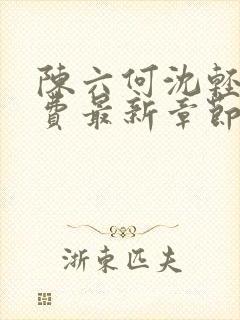 陳六何沈輕
費最新章節
浙東匹夫